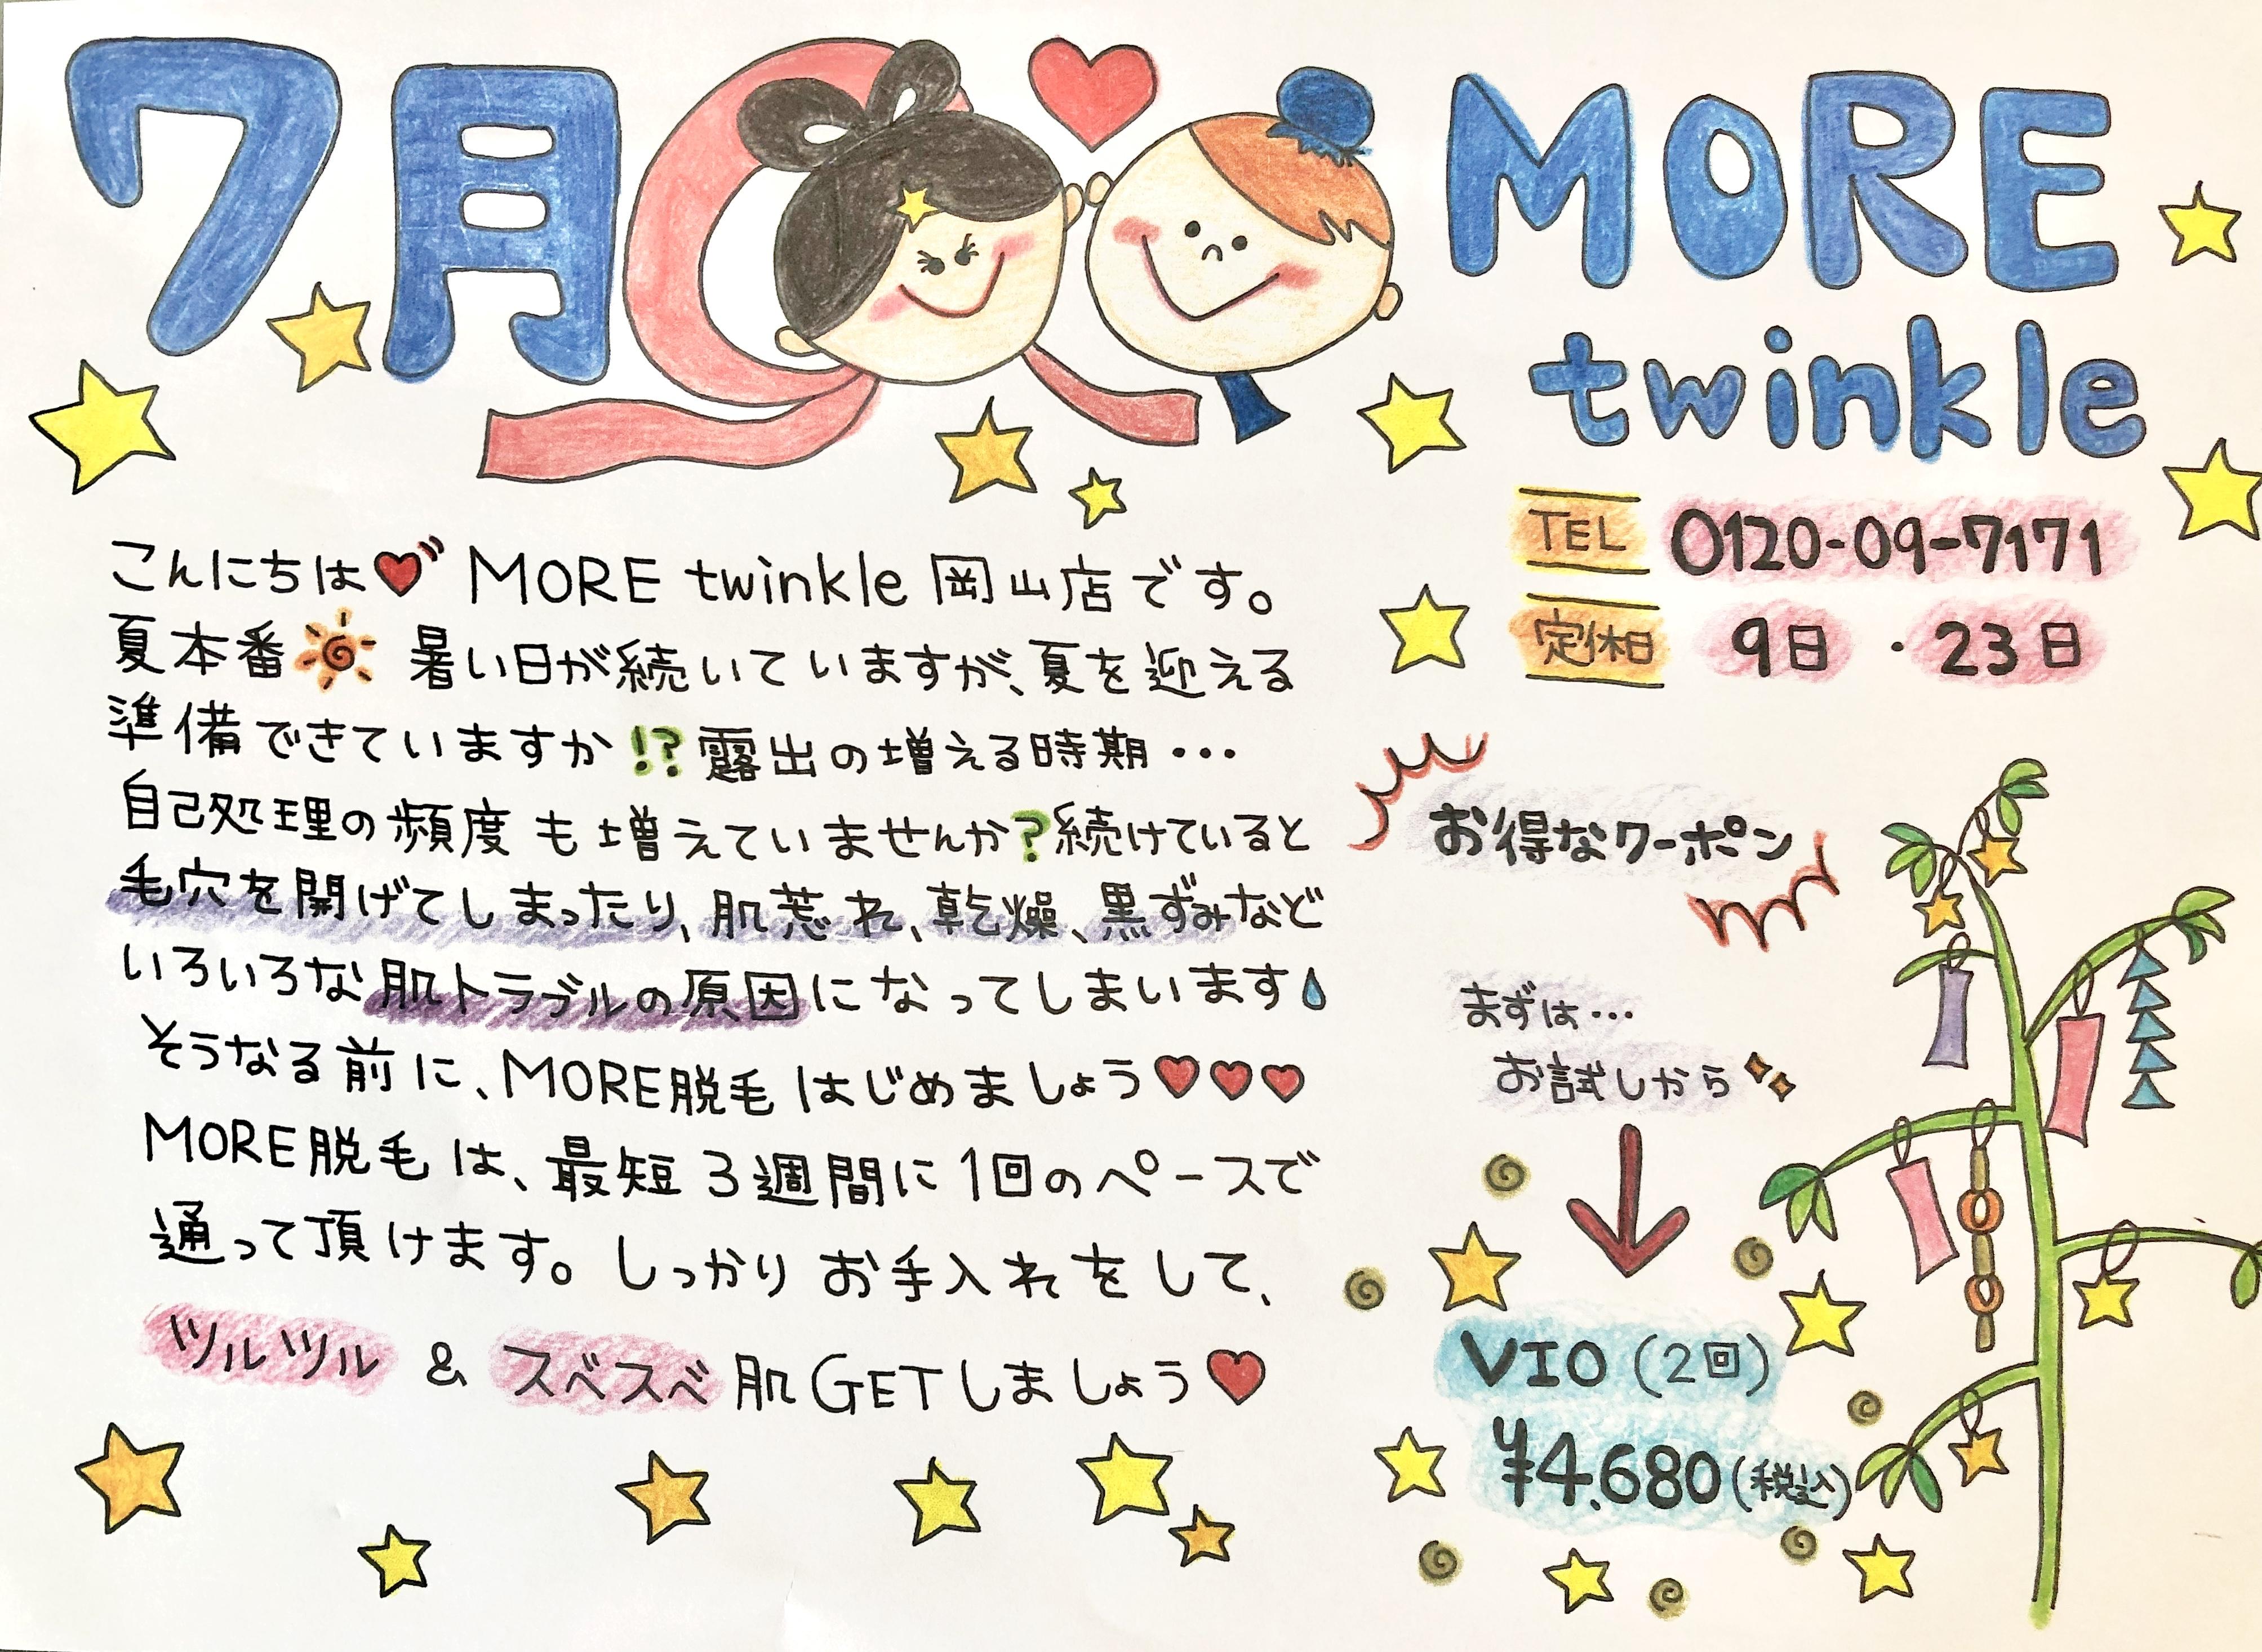 7月
MORE
twinkle
こんにちは MORE twinkle 岡山店です。
夏本番 暑い日が続いていますが、夏を迎える
準備できていますか!?露出の増える時期…
自己処理の頻度も増えていませんか?続けていると
毛穴を開げてしまったり、肌荒れ、乾燥、黒ずみなど
いろいろな肌トラブルの原因になってしまいます
そうなる前に、MORE脱毛はじめましょう
MORE脱毛は、最短3週間に1回のペースで
通って頂けます。しっかりお手入れをして、
ツルツル & スベスベ肌GETしましょう
TEL 0120-09-7171
定休日 9日・23日
お得なクーポン
まずは…
お試しから
VIO(2回)
¥4.680(税込)